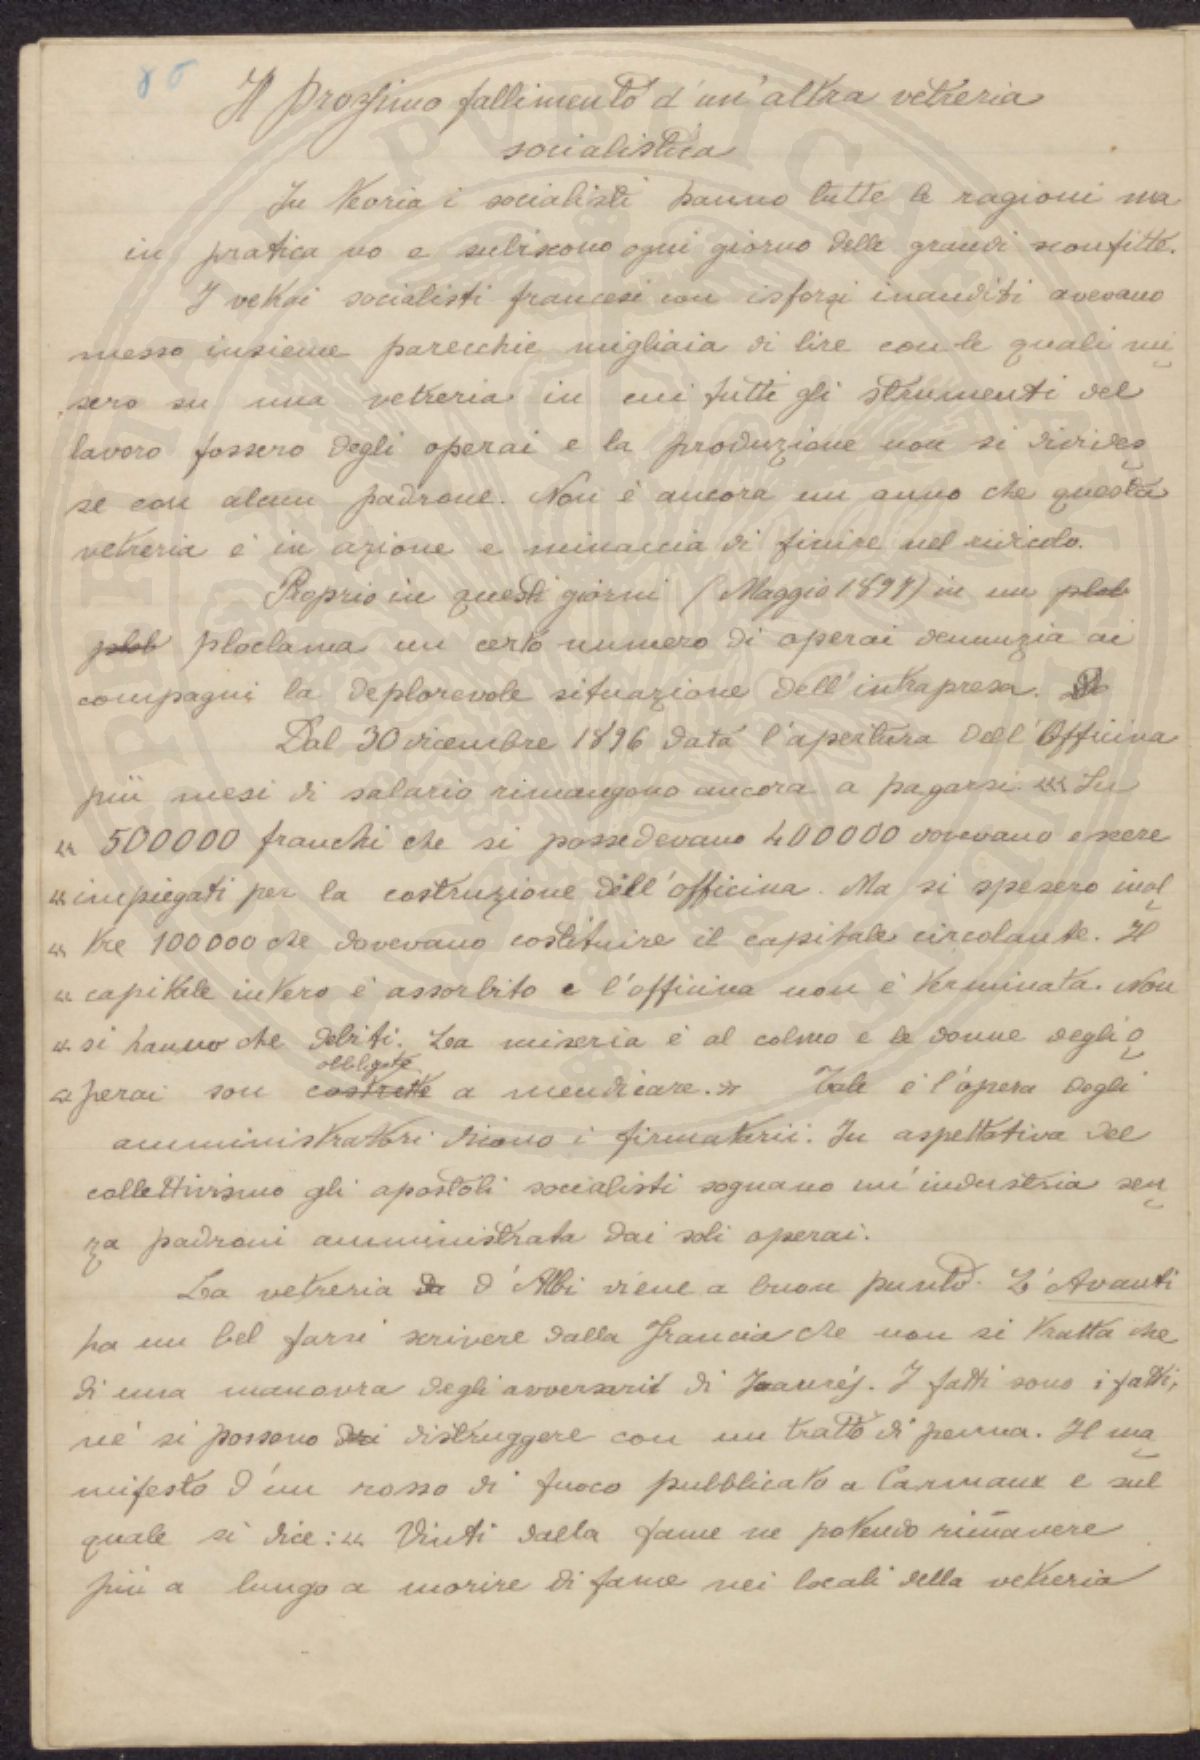 Il prossimo fallimento d'un'altra vetreria
socialistica
In teoria i socialisti hanno tutte le ragioni ma
in pratica no e subiscono ogni giorno delle grandi sconfitte.
I vetrai socialisti francesi con isforzi inauditi avevano
messo insieme parecchie migliaia di lire con le quali mi
sero su una vetreria in cui tutti gli strumenti del
lavoro fossero degli operai e la produzione non si divides
se con alcun padrone. Non è ancora un anno che questa
vetreria è in azione e minaccia di finire nel ridicolo.
Proprio in questi giorni (Maggio 1897) in un
ploclama un certo numero di operai denunzia ai
compagni la deplorevole situazione dell'intrapresa.
Dal 30 dicembre 1896 data l'apertura dell'Officina
più mesi di salario rimangono ancora a pagarsi. «« Su
« 500000 franchi che si possedevano 400000 dovevano essere
« impiegati per la costruzione dell'officina. Ma si spesero inol
« tre 100000 che dovevano costituire il capitale circolante. Il
« capitale intero è assorbito e l'officina non è terminata. Non
« si hanno che debiti. La miseria è al colmo e le donne degli o
obbligate
« perai son costrette a mendicare. » Tale è l'opera degli
amministratori dicono i firmatarii. In aspettativa del
collettivismo gli apostoli socialisti sognano un'industria sen
za padroni amministrata dai soli operai.
La vetreria da d'Albi viene a buon punto. L'Avanti
ha un bel farsi scrivere dalla Francia che non si tratta che
di una manovra degli avversarii di Jaurés. I fatti sono i fatti,
né si possono distruggere con un tratto di penna. Il ma
nifesto d'un rosso di fuoco pubblicato a Carmaux e sul
quale si dice: « Vinti dalla fame ne potendo rimanere
più a lungo a morire di fame nei locali della vetreria